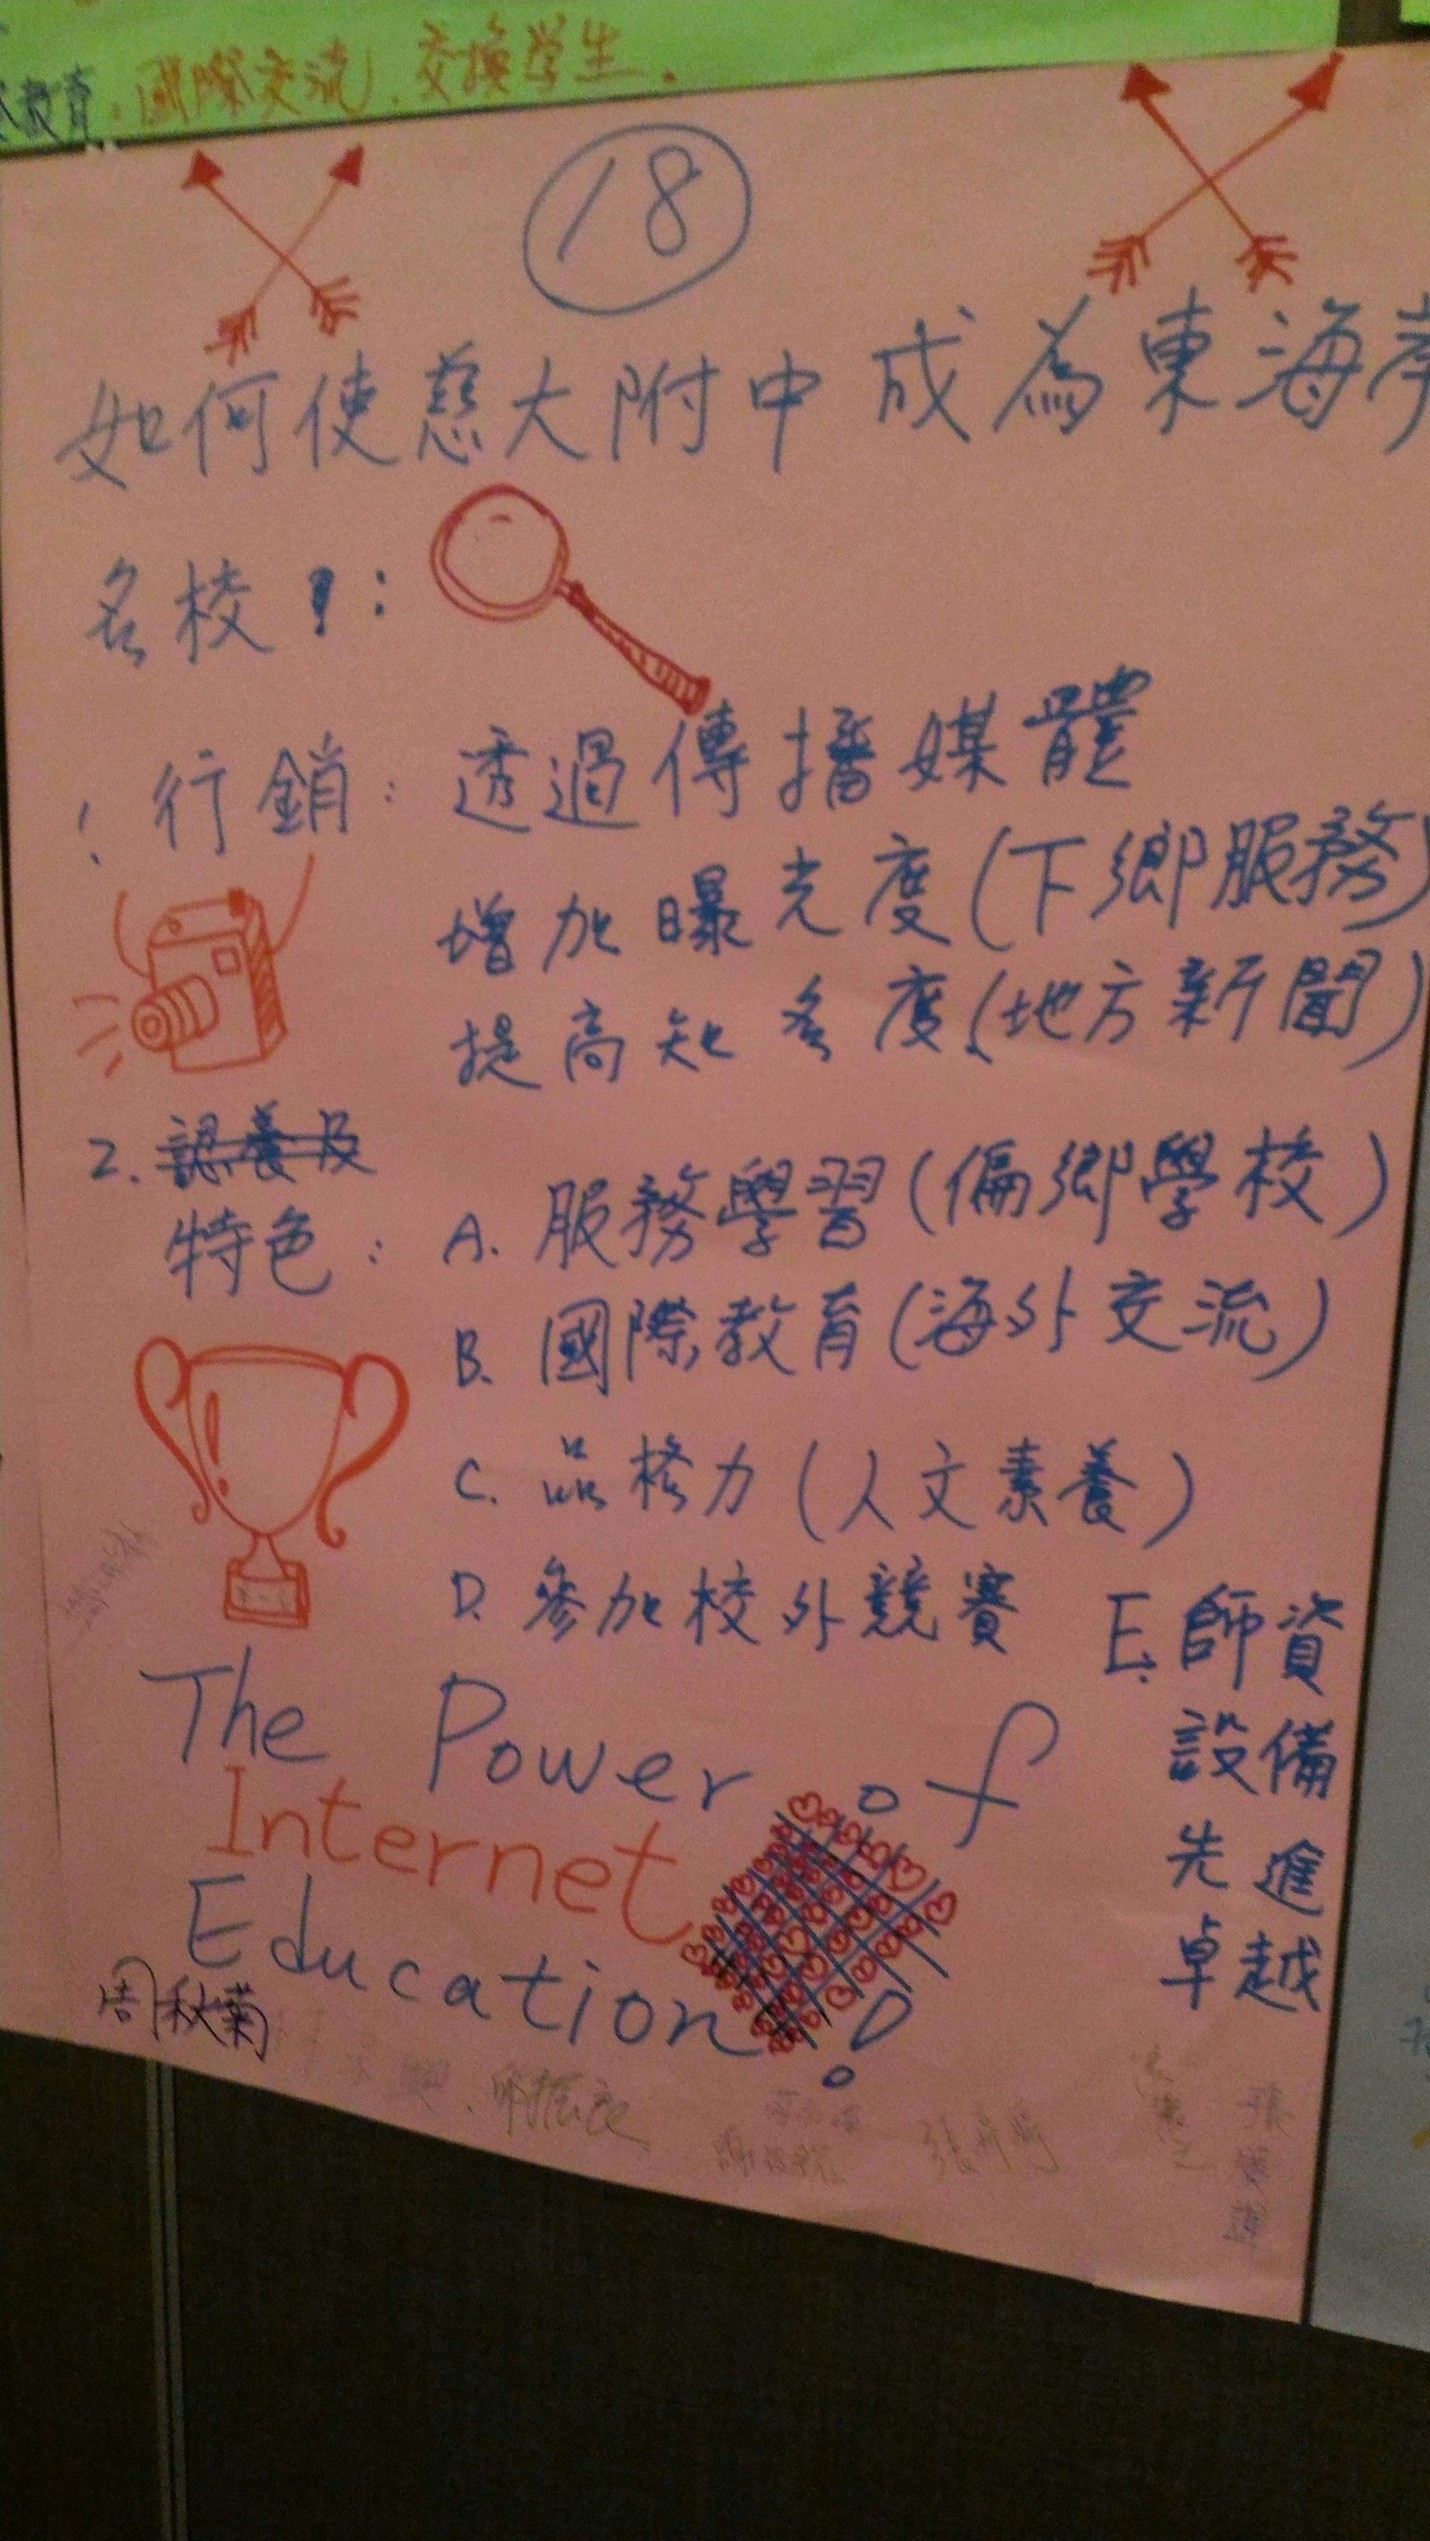 教育,國際交流,交換学生.
18
如何使慈大附中成為東海岸
名校?:
1.行銷:透過傳播媒體
增加曝光度(下鄉服務)
提高知名度(地方新聞)
2.認養及
特色:A.服務學習(偏鄉學校)
B.國際教育(海外交流)
C.品格力(人文素養)
D.參加校外競賽
E.師資
設備
先進
卓越
The Power of
Internet
Education!
周秋菊